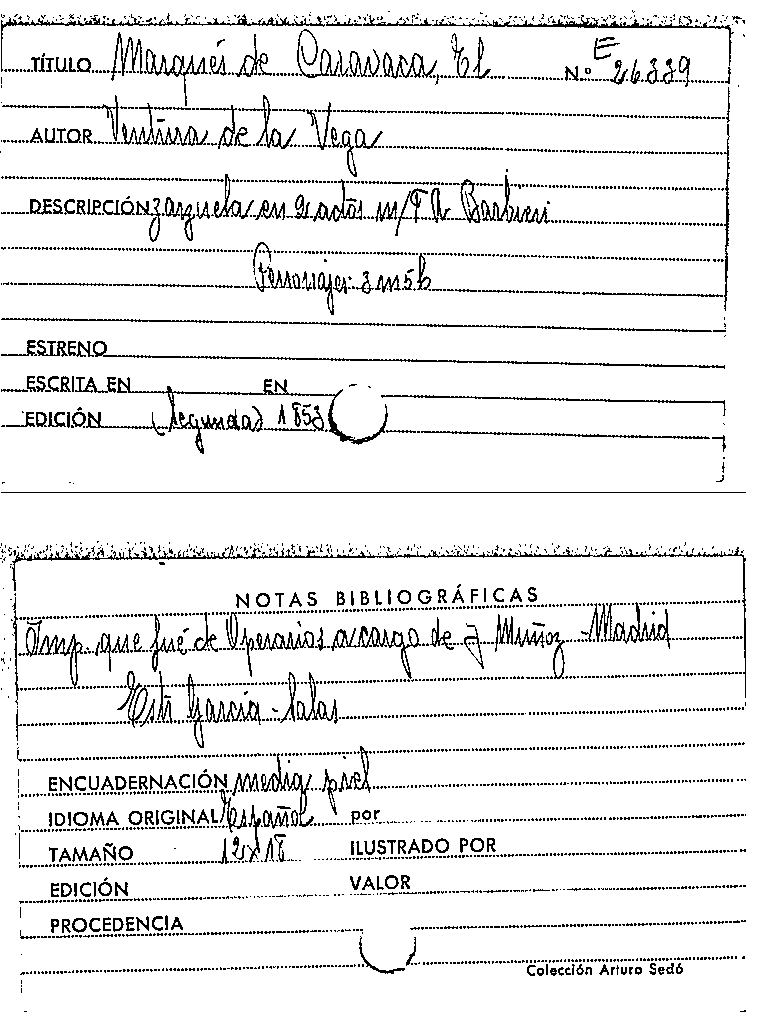 TÍTULO Marqués de Caravaca, El Nº E 26339
AUTOR Ventura de la Vega
DESCRIPCIÓN zarzuela en 2 actos m/ F A Barbieri
Personajes: 3 m 5 h
ESTRENO
ESCRITA EN EN
EDICIÓN (Segunda) 1853
NOTAS BIBLIOGRÁFICAS
Imp. que fué de Operarios a cargo de J Muñoz - Madrid
Este García - Salas
ENCUADERNACIÓN media piel
IDIOMA ORIGINAL Español por
TAMAÑO 12x18 ILUSTRADO POR
EDICIÓN VALOR
PROCEDENCIA
Colección Arturo Sedó